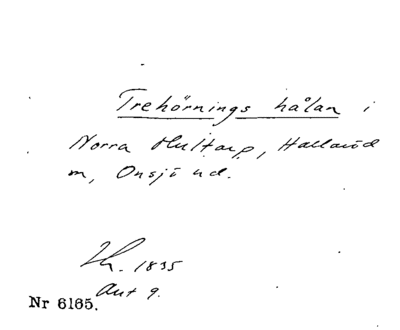 Trehörnings hålan i
Norra Hultarp, Hallaröd
m, Onsjö ud.
1835
Akt 9.
Nr 6165.